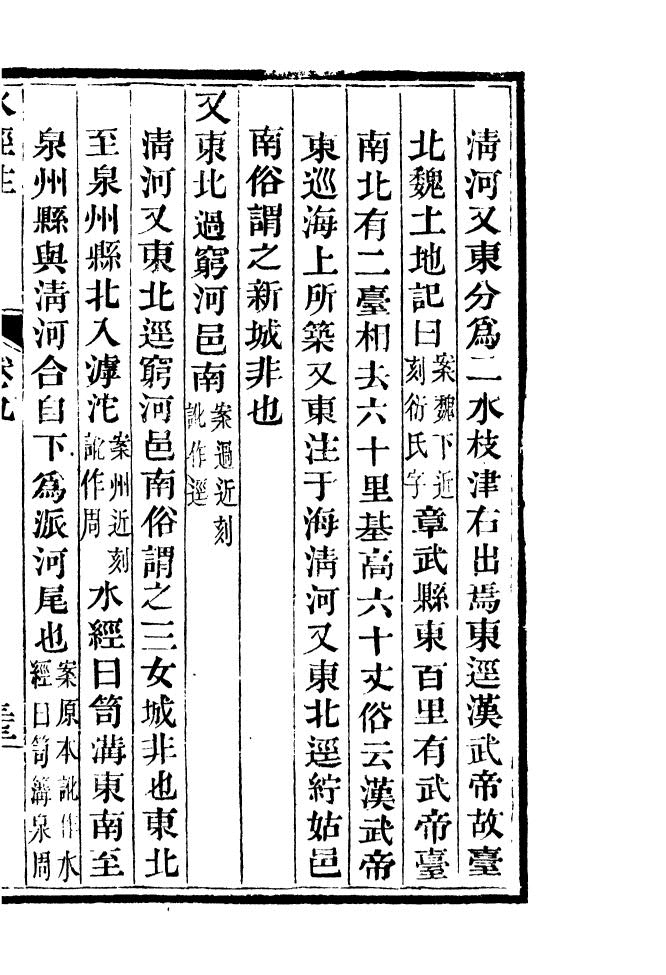 清河又東分爲二水枝津右出焉東逕漢武帝故臺
北魏土地記曰案魏下近刻衍氏字章武縣東百里有武帝臺
南北有二臺相去六十里基高六十丈俗云漢武帝
東巡海上所築又東注于海清河又東北逕紵姑邑
南俗謂之新城非也
又東北過窮河邑南案過近刻訛作逕
清河又東北逕窮河邑南俗謂之三女城非也東北
至泉州縣北入滹沱案州近刻訛作周水經曰笥溝東南至
泉州縣與清河合自下爲派河尾也案原本訛作水經曰笥溝泉周
水經注
卷九